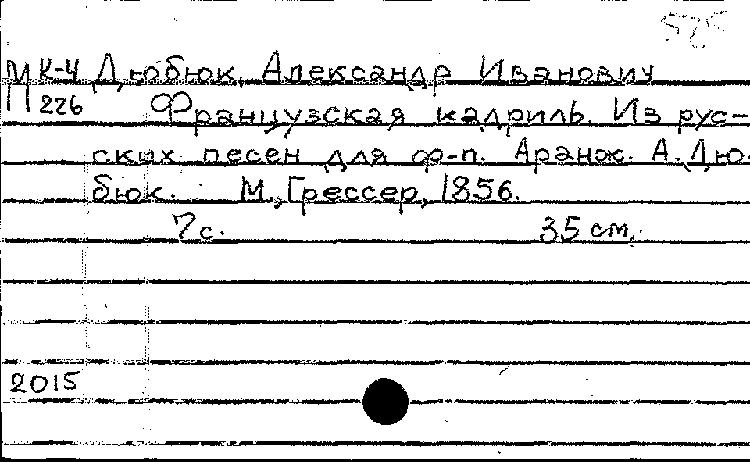 М К-4 Дюбюк, Александр Иванович
226 Французская кадриль. Из рус-
ских песен для ф-п. Аранж. А. Дю-
бюк. М., Грессер, 1856.
7 с. 35 см.
2015